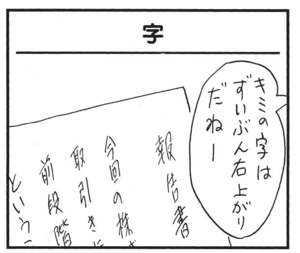 字
キミの字は
ずいぶん右上がり
だねー
報告書
今回の株
取引き
前段階
という